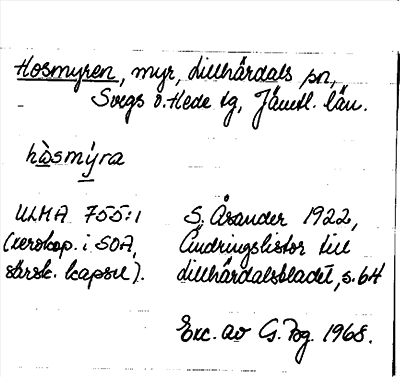 Hosmyren, myr, Lillhärdals sn,
Svegs o. Hede tg, Jämtl. län.
hòsmýra
ULMA 755:1 S. Åsander 1922,
(xeroxkop. i SOA, Ändringslistor till
särsk. kapsel). Lillhärdalsbladet, s. 64
Exc. av G. Pg. 1968.